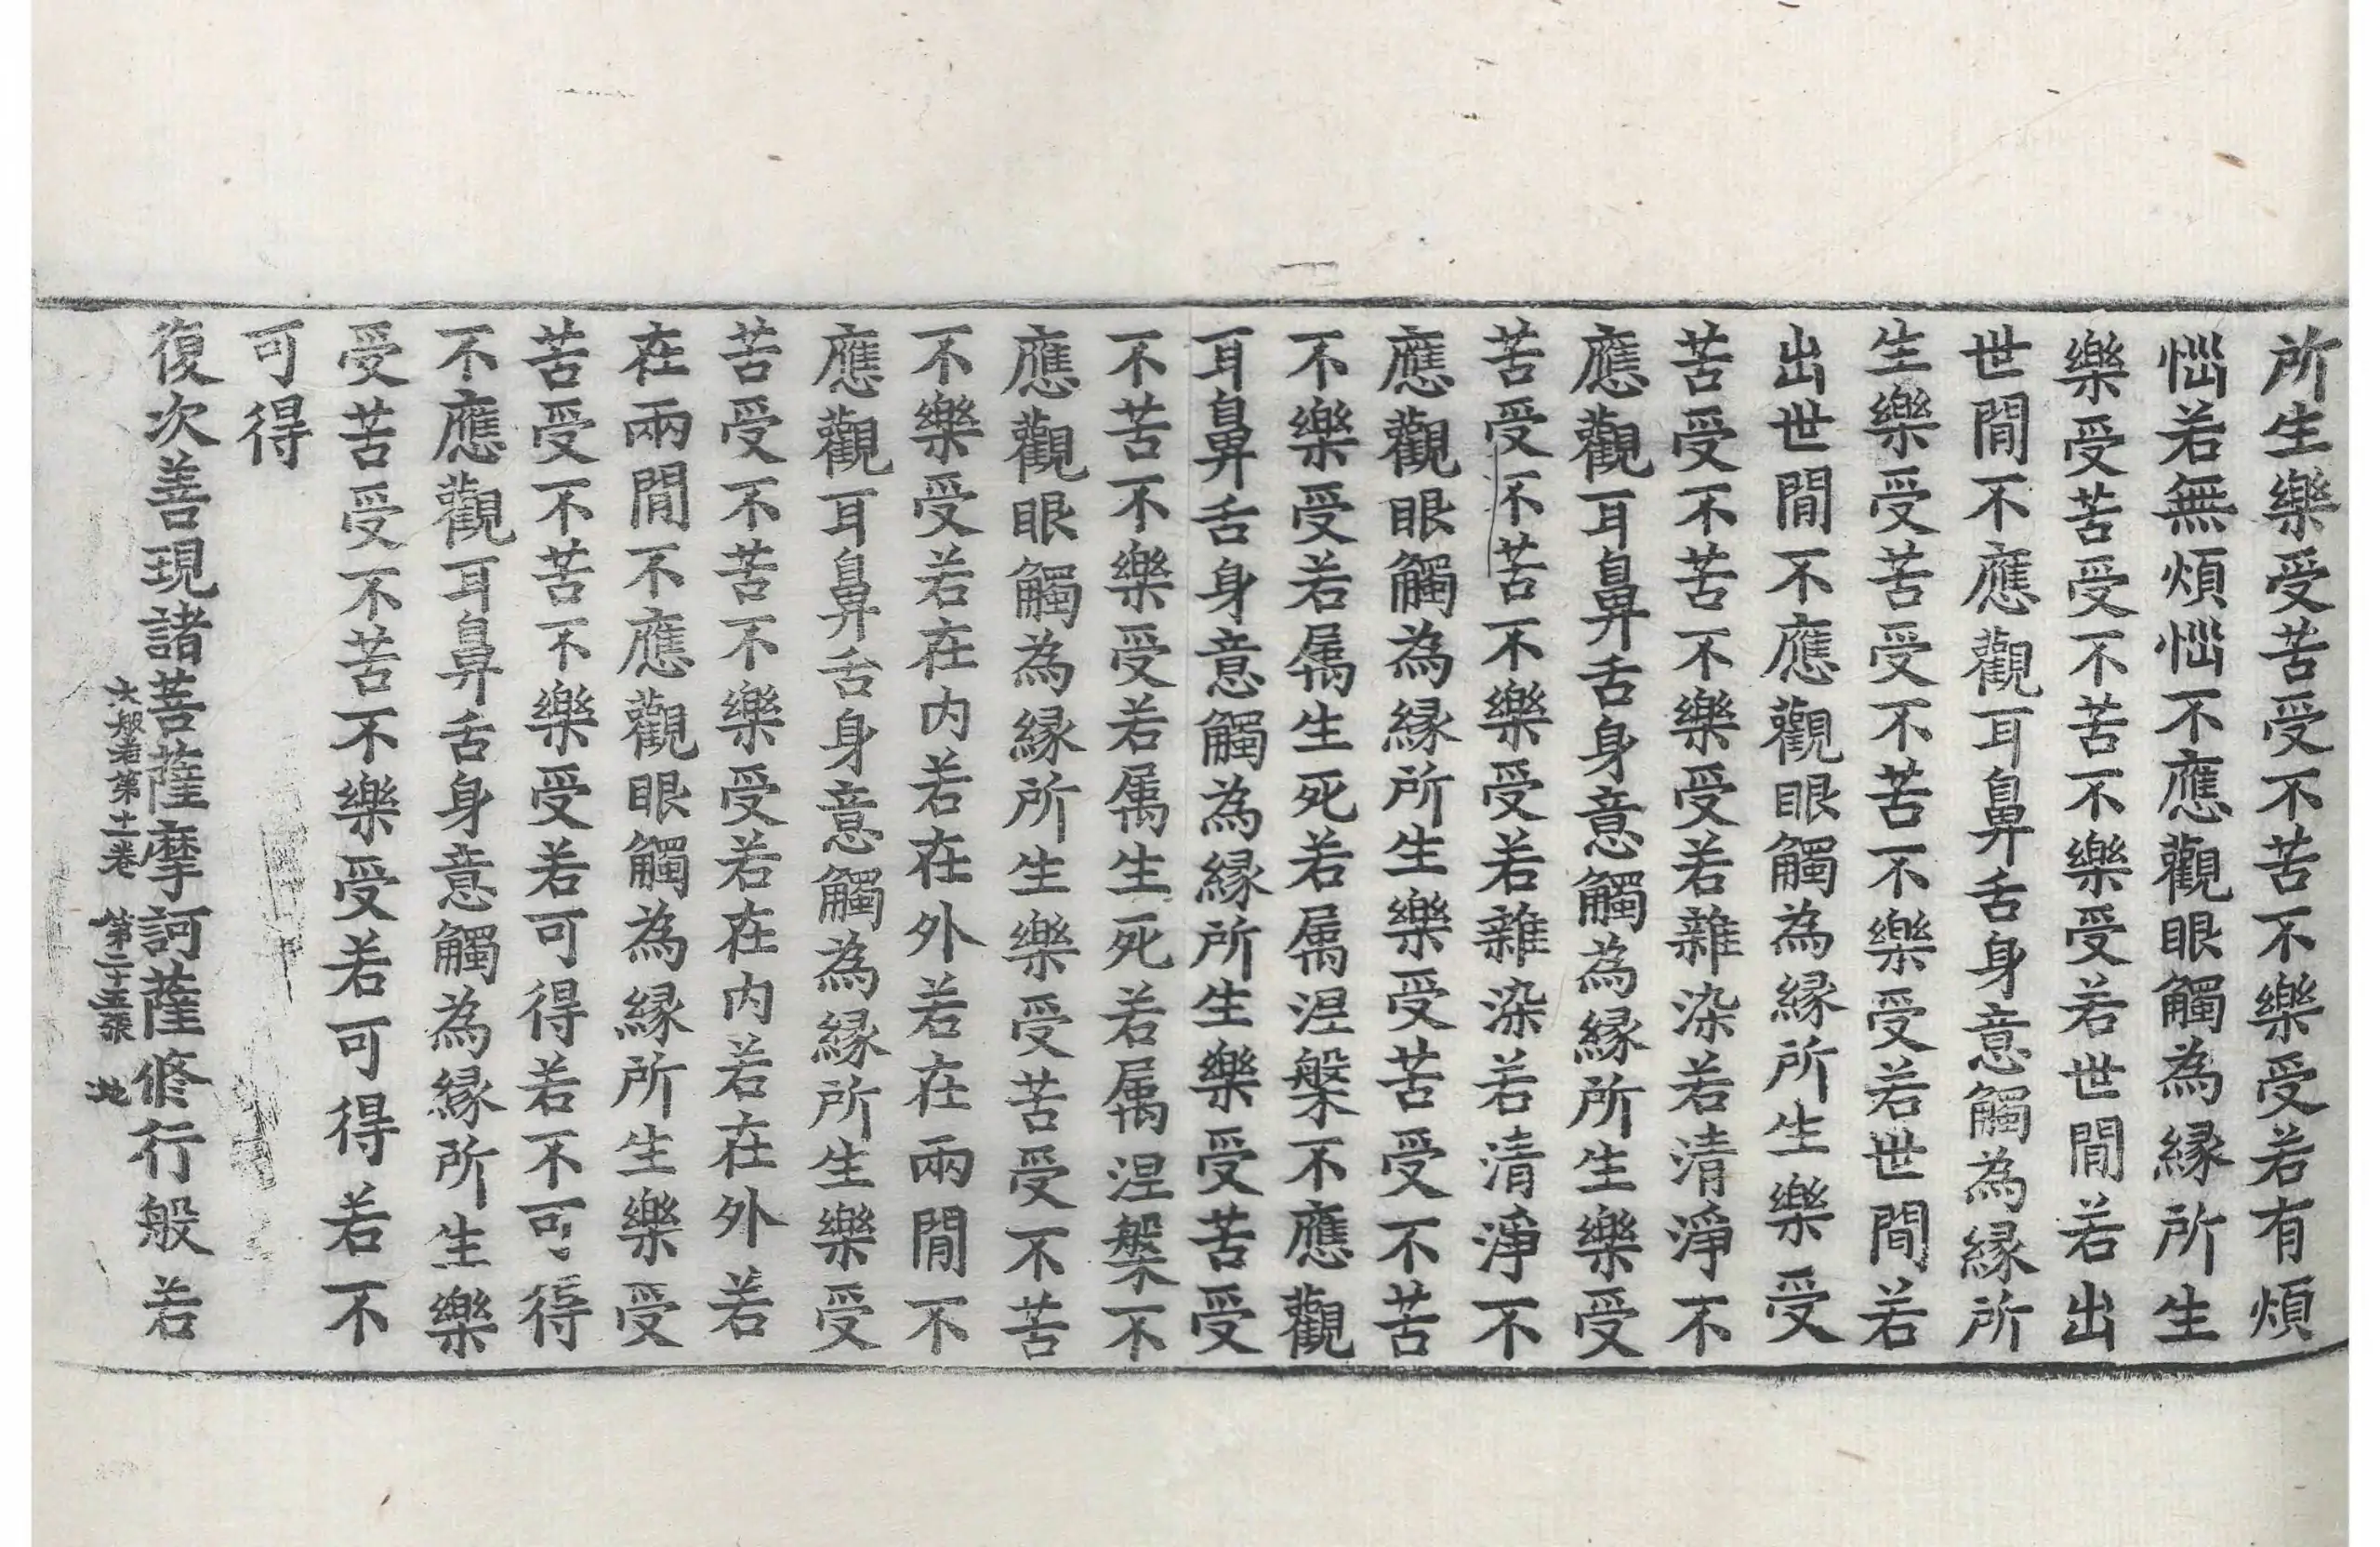 所生樂受苦受不苦不樂受若有煩
惱若無煩惱不應觀眼觸為緣所生
樂受苦受不苦不樂受若世閒若出
世閒不應觀耳鼻舌身意觸為緣所
生樂受苦受不苦不樂受若世間若
出世閒不應觀眼觸為緣所生樂受
苦受不苦不樂受若雜染若清淨不
應觀耳鼻舌身意觸為緣所生樂受
苦受不苦不樂受若雜染若清淨不
應觀眼觸為緣所生樂受苦受不苦
不樂受若属生死若属涅槃不應觀
耳鼻舌身意觸為緣所生樂受苦受
不苦不樂受若属生死若属涅槃不
應觀眼觸為緣所生樂受苦受不苦
不樂受若在内若在外若在兩閒不
應觀耳鼻舌身意觸為緣所生樂受
苦受不苦不樂受若在内若在外若
在兩閒不應觀眼觸為緣所生樂受
苦受不苦不樂受若可得若不可得
不應觀耳鼻舌身意觸為緣所生樂
受苦受不苦不樂受若可得若不
可得
復次善現諸菩薩摩訶薩修行般若
大般若第十二卷 第二十五張 地